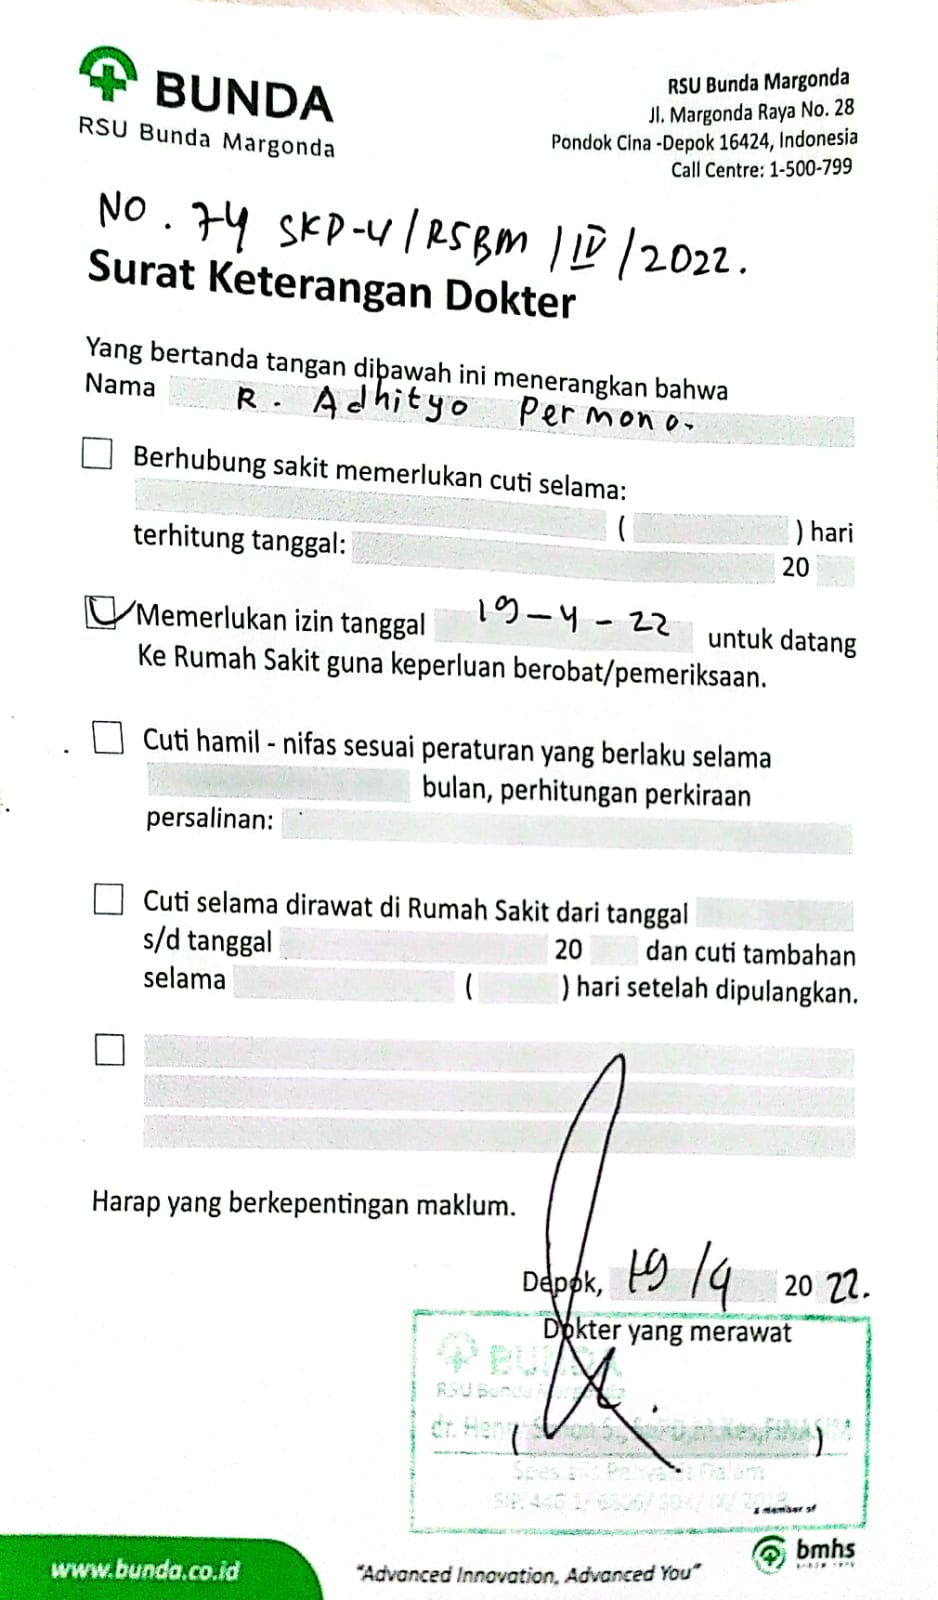 BUNDA
RSU Bunda Margonda
RSU Bunda Margonda
Jl. Margonda Raya No. 28
Pondok Cina -Depok 16424, Indonesia
Call Centre: 1-500-799
NO. 74 SKD-4/RSBM/IV/2022.
Surat Keterangan Dokter
Yang bertanda tangan dibawah ini menerangkan bahwa
Nama R. Adhityo Permono.
Berhubung sakit memerlukan cuti selama:
( ) hari
terhitung tanggal: 20
Memerlukan izin tanggal 19-4-22 untuk datang
Ke Rumah Sakit guna keperluan berobat/pemeriksaan.
Cuti hamil - nifas sesuai peraturan yang berlaku selama
bulan, perhitungan perkiraan
persalinan:
Cuti selama dirawat di Rumah Sakit dari tanggal
s/d tanggal 20 dan cuti tambahan
selama ( ) hari setelah dipulangkan.
Harap yang berkepentingan maklum.
Depok, 19/4 2022.
Dokter yang merawat
BUNDA
RSU Bunda Margonda
dr. Henry S., SpPD, M.Kes, FINASIM
( )
Spesialis Penyakit Dalam
SIP.
a member of
bmhs
www.bunda.co.id
"Advanced Innovation, Advanced You"